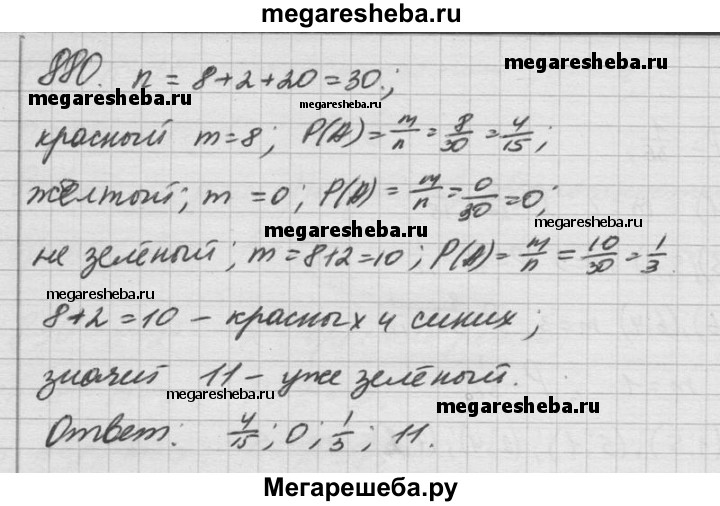 megaresheba.ru
880. n = 8+2+20=30.;
megaresheba.ru megaresheba.ru
красный m=8; P(A)=m/n=8/30=4/15;
жёлтый; m =0; P(A)=m/n=0/30=0;
megaresheba.ru megaresheba.ru
не зелёный; m=8+2=10; P(A)=m/n=10/30=1/3.
megaresheba.ru megaresheba.ru
8+2=10 – красных и синих;
значит 11 – уже зелёный.
megaresheba.ru megaresheba.ru
Ответ: 4/15; 0; 1/3; 11.
Мегарешеба.ру